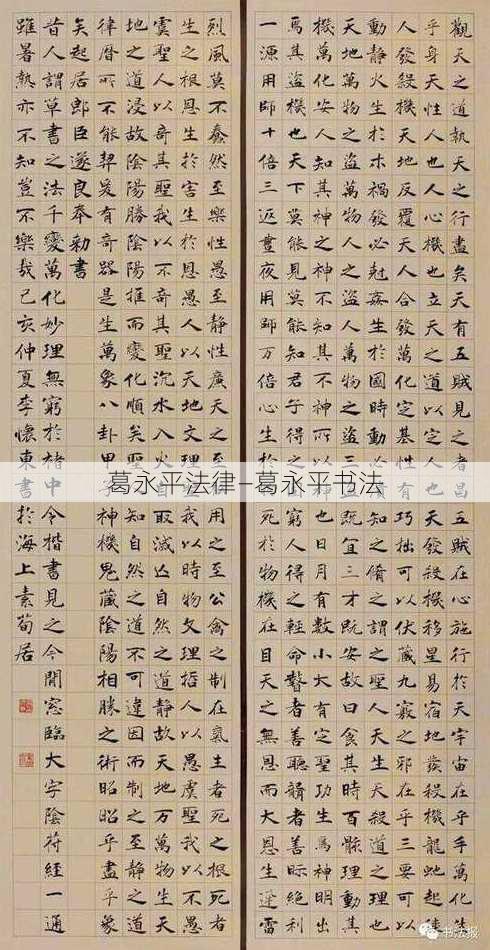 觀天之道執天之行盡矣天有五賊見之者昌五賊在心施行於天宇宙在乎手萬化生
乎身天性人也人心機也立天之道以定人也天發殺機移星易宿地發殺機龍蛇起陸
人發殺機天地反覆天人合發萬化定基性有巧拙可以伏藏九竅之邪在乎三要可以
動靜火生於木禍發必剋姦生於國時動必知之脩之謂之聖人天生天殺道之理也
天地萬物之盜萬物人之盜人萬物之盜三盜既宜三才既安故曰食其時百骸理動其
機萬化安人知其神之神不知其不神所以神也日月有數小大有定聖功生焉神明出
焉其盜機也天下莫能見莫能知君子得之窮人得之輕命瞽者善聽聾者善眎絕利
一源用師十倍三返晝夜用師万倍心生於死於物機在目天之無恩而大恩生迅雷
烈風莫不蠢然至樂性愚至靜性廣天之至用之至公禽之制在氣生者死之根死者
生之根恩生於害生於恩愚人以天地文理我以時物文理哲人以愚虞聖我以不愚
虞聖人以奇其聖我以不奇其聖沉水入火自取滅亡自然之道靜故天地万物生天
地之道浸故陰陽勝陰陽推而變化順矣聖人知自然之道不可違因而制之至靜之道
律曆所不能契爰有奇器是生萬象八卦甲子神機鬼藏陰陽相勝之術昭昭乎盡乎象
矣起居郎臣遂良奉勅書
昔人謂草書之法千變萬化妙理無窮於楮中今楷書見之今開窓臨大字陰符經一通
雖暑熱亦不知豈不樂哉己亥仲夏李懷東書於海上素筍居
葛永平法律–葛永平书法
书法报